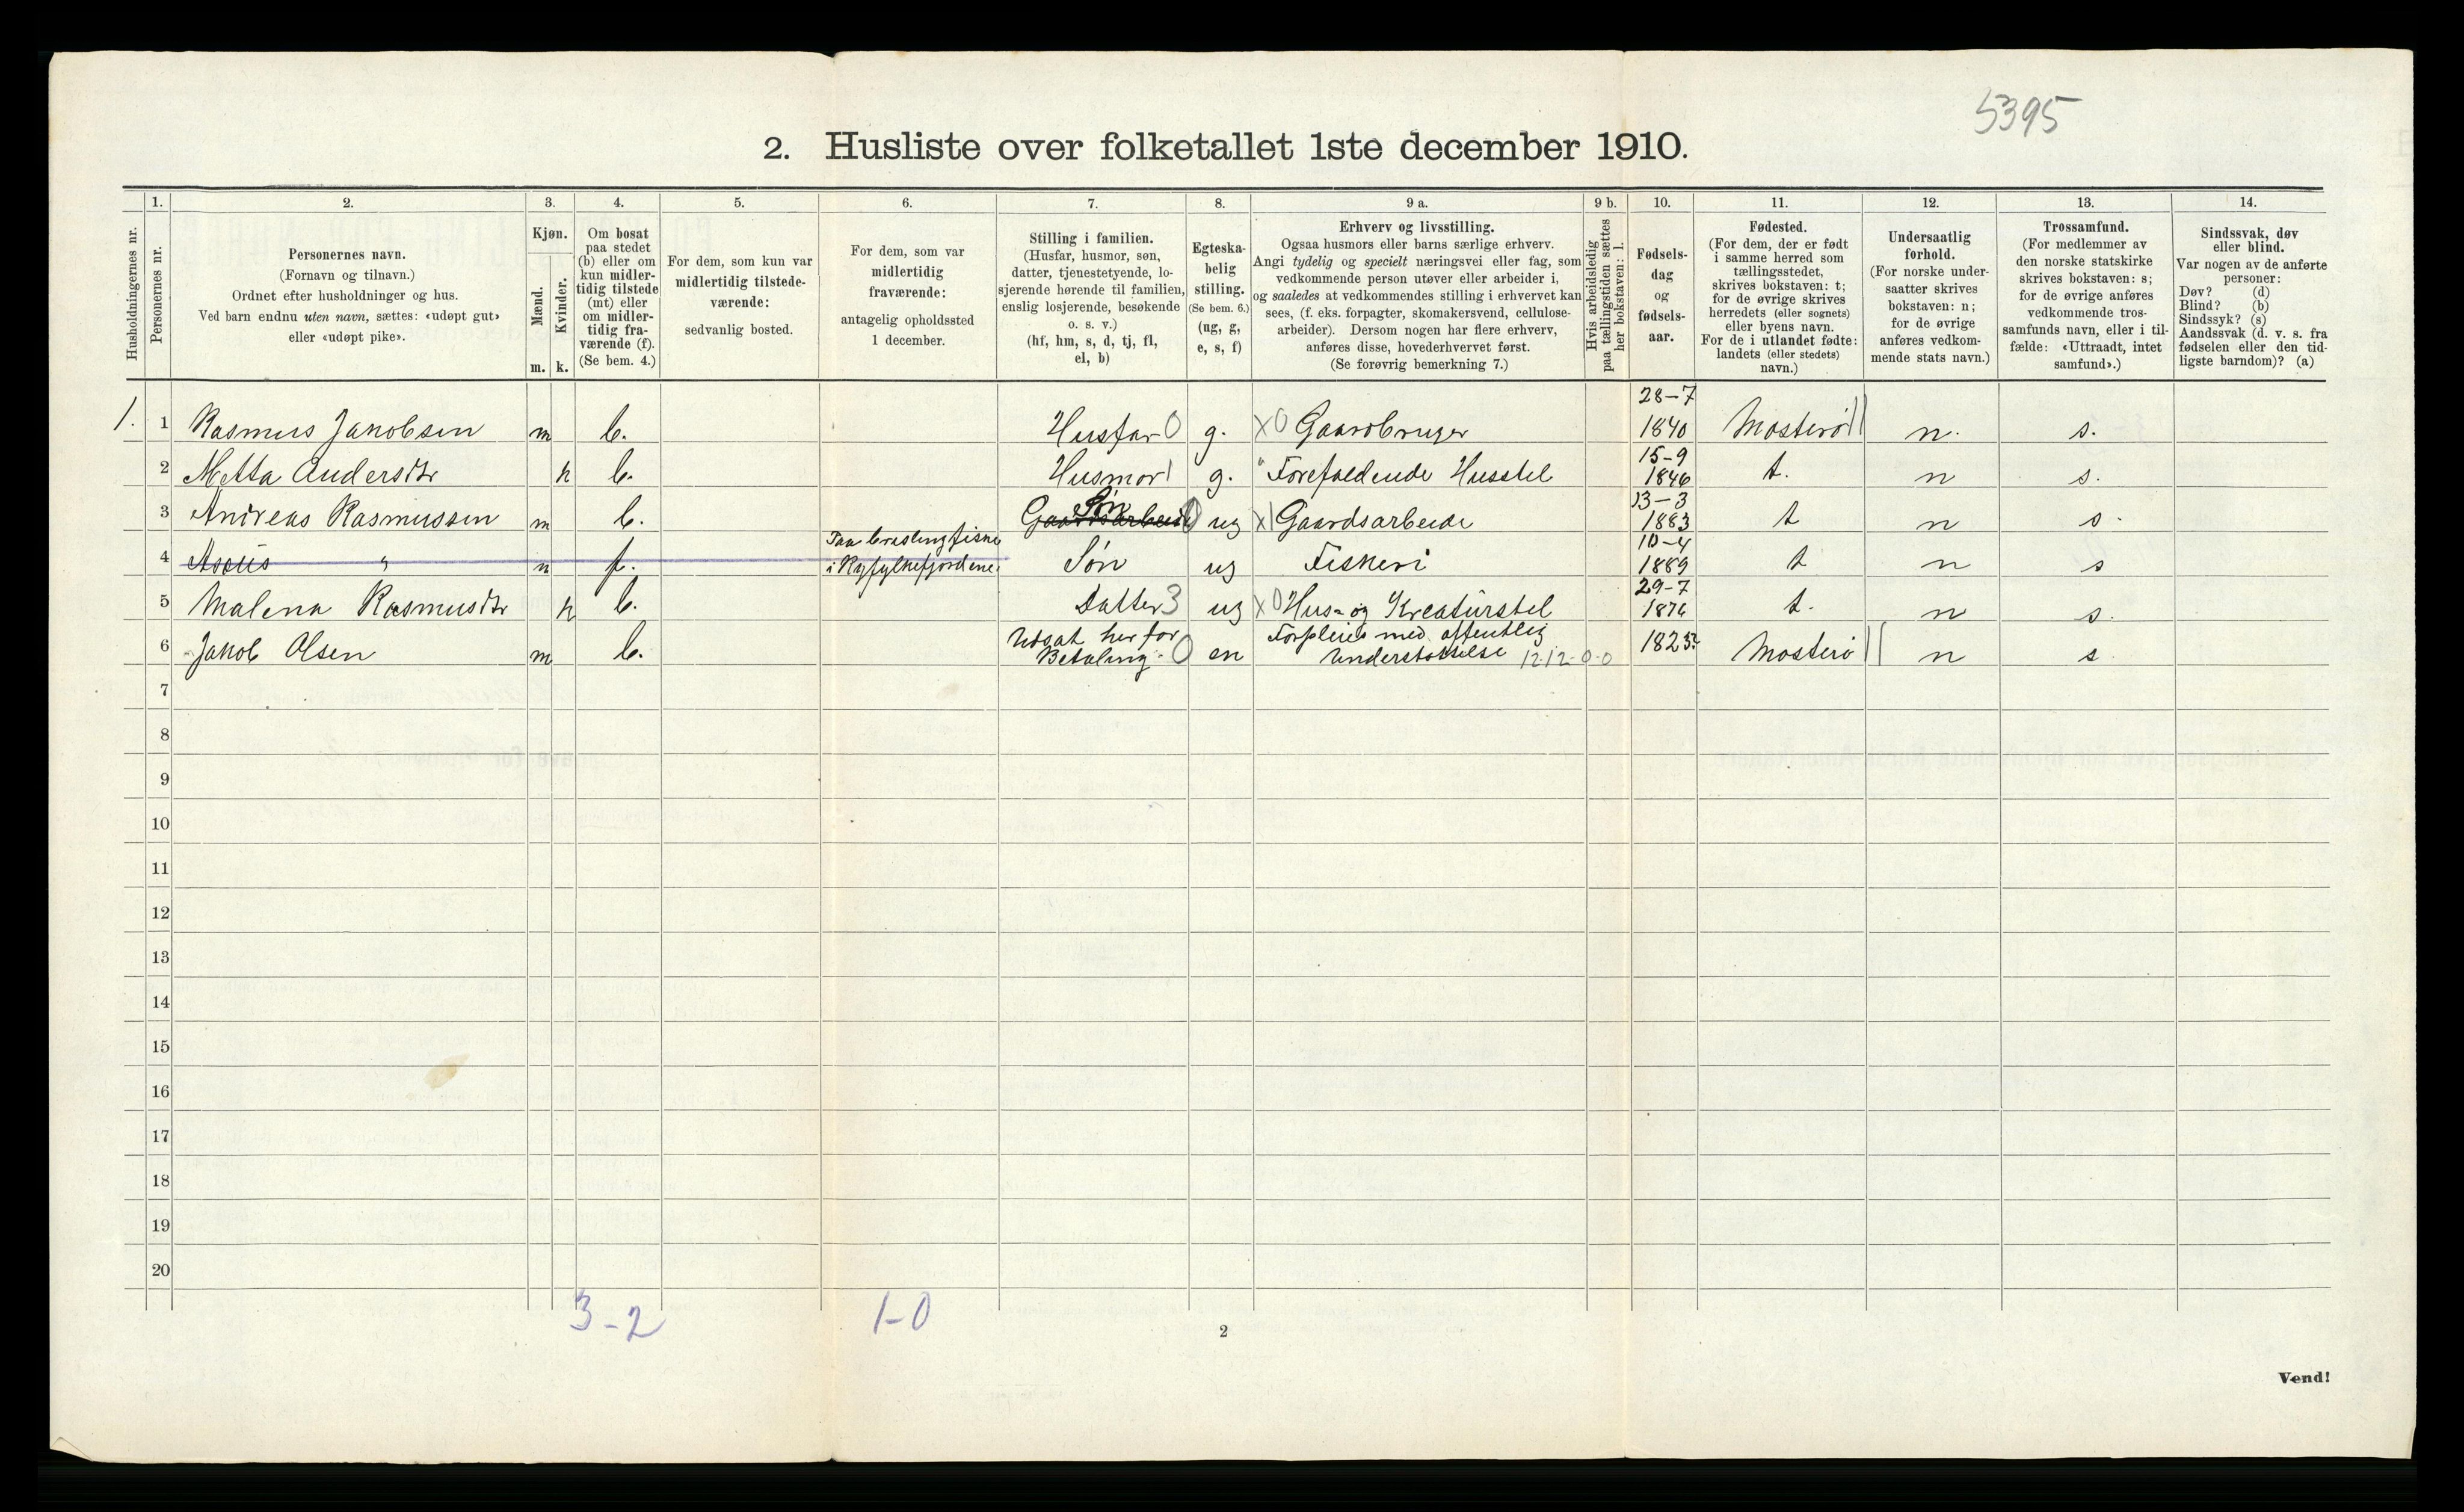 5395
2. Husliste over folketallet 1ste december 1910.
1. 2. 3. 4. 5. 6. 7. 8. 9 a. 9 b. 10. 11. 12. 13. 14.
Husholdningernes nr.
Personernes nr.
Personernes navn.
(Fornavn og tilnavn.)
Ordnet efter husholdninger og hus.
Ved barn endnu uten navn, sættes: «udøpt gut»
eller «udøpt pike».
Kjøn.
Mænd.
Kvinder.
m. k.
Om bosat
paa stedet
(b) eller om
kun midler-
tidig tilstede
(mt) eller
om midler-
tidig fra-
værende (f).
(Se bem. 4.)
For dem, som kun var
midlertidig tilstede-
værende:
sedvanlig bosted.
For dem, som var
midlertidig
fraværende:
antagelig opholdssted
1 december.
Stilling i familien.
(Husfar, husmor, søn,
datter, tjenestetyende, lo-
sjerende hørende til familien,
enslig losjerende, besøkende
o. s. v.)
(hf, hm, s, d, tj, fl,
el, b)
Egteska-
belig
stilling.
(Se bem. 6.)
(ug, g,
e, s, f)
Erhverv og livsstilling.
Ogsaa husmors eller barns særlige erhverv.
Angi tydelig og specielt næringsvei eller fag, som
vedkommende person utøver eller arbeider i,
og saaledes at vedkommendes stilling i erhvervet kan
sees, (f. eks. forpagter, skomakersvend, cellulose-
arbeider). Dersom nogen har flere erhverv,
anføres disse, hovederhvervet først.
(Se forøvrig bemerkning 7.)
Hvis arbeidsledig
paa tællingstiden sættes
her bokstaven: l.
Fødsels-
dag
og
fødsels-
aar.
Fødested.
(For dem, der er født
i samme herred som
tællingsstedet,
skrives bokstaven: t;
for de øvrige skrives
herredets (eller sognets)
eller byens navn.
For de i utlandet fødte:
landets (eller stedets)
navn.)
Undersaatlig
forhold.
(For norske under-
saatter skrives
bokstaven: n;
for de øvrige
anføres vedkom-
mende stats navn.)
Trossamfund.
(For medlemmer av
den norske statskirke
skrives bokstaven: s;
for de øvrige anføres
vedkommende tros-
samfunds navn, eller i til-
fælde: «Uttraadt, intet
samfund».)
Sindssvak, døv
eller blind.
Var nogen av de anførte
personer:
Døv? (d)
Blind? (b)
Sindssyk? (s)
Aandssvak (d. v. s. fra
fødselen eller den tid-
ligste barndom)? (a)
1. 1 Rasmus Jakobsen m b. Husfar 0 g. X0 Gaardbruger 28-7 1840 Mosterø n. s.
2 Metta Andersdtr k b. Husmor 1 g. " Forefaldende Husstel 15-9 1846 t. n s.
3 Andreas Rasmussen m b. Gaardsarbeide Søn ug X1 Gaardsarbeide 13-3 1883 t n s.
4 " m f. i Ryfylkefjordene. Søn ug Fiskeri 10-4 1889 t n s
5 Malena Rasmusdtr k b. Datter 3 ug X0 Hus- og Kreaturstel 29-7 1876 t. n s.
6 Jakob Olsen m b. Udsat her for Betaling. 0 en Forpleies med offentlig Understøttelse 12.12-0-0 1825? Mosterø n s
7
8
9
10
11
12
13
14
15
16
17
18
19
20
3-2 1-0
2
Vend!